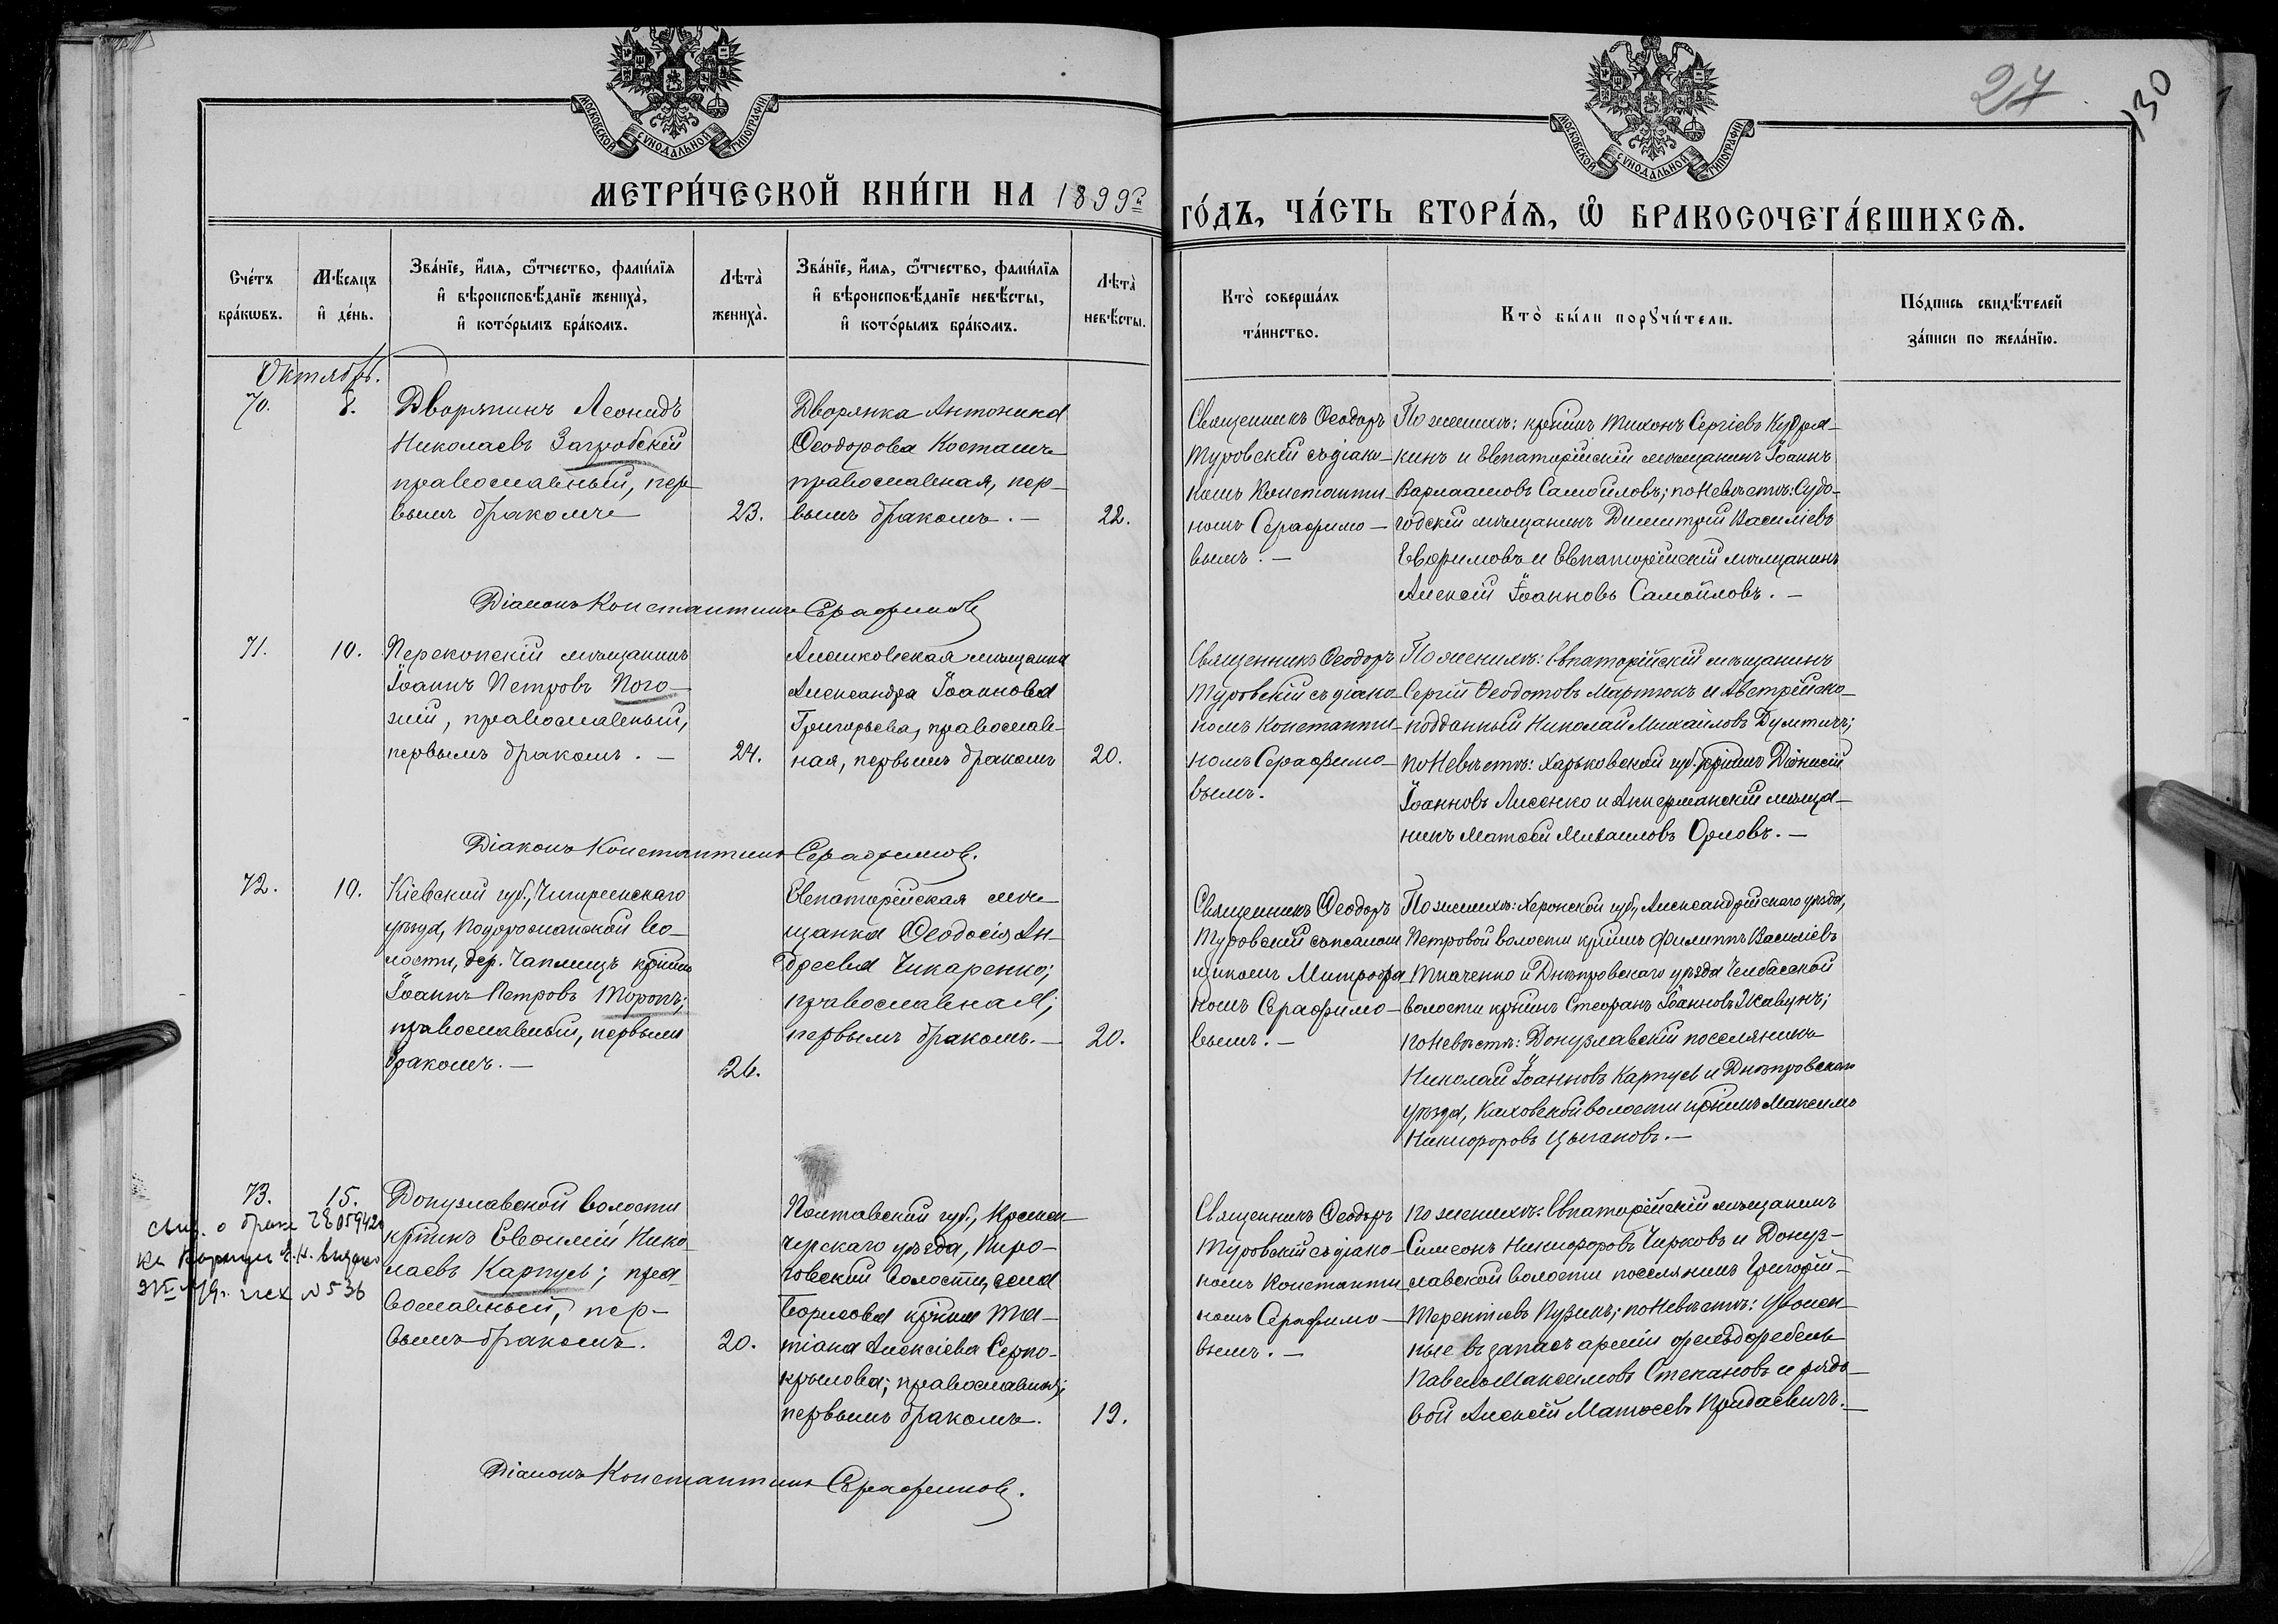 МОСКОВСКОЙ СѴНОДАЛЬНОЙ ТИПОГРАФІИ
МОСКОВСКОЙ СѴНОДАЛЬНОЙ ТИПОГРАФІИ
27
130
МЕТРИ́ЧЕСКОЙ КНИ́ГИ НА 1899й
ГО́ДЪ, ЧА́СТЬ ВТОРА́Ѧ, Ѡ҆ БРАКОСОЧЕТА́ВШИХСѦ.
Сче́тъ
бра́кѡвъ.
Мѣ́сяцъ
и҆ де́нь.
Зва́нїе, и҆́мя, ѻ҆́тчество, фами́лїя
и҆ вѣроисповѣ́данїе жениха̀,
и҆ кото́рымъ бра́комъ.
Лѣта̀
жениха̀.
Зва́нїе, и҆́мя, ѻ҆́тчество, фами́лїя
и҆ вѣроисповѣ́данїе невѣ́сты,
и҆ кото́рымъ бра́комъ.
Лѣта̀
невѣ́сты.
Кто̀ соверша́лъ
та́инство.
Кто̀ бы́ли порꙋчи́тели.
По́дпись свидѣ́телей
за́писи по жела́нїю.
Октябрь.
70.
8.
Дворянинъ Леонидъ
Николаевъ Загробскій
православный, пер-
вымъ бракомъ
23.
Дворянка Антонина
Ѳеодорова Косташъ
православная, пер-
вымъ бракомъ. —
22.
Священникъ Ѳеодоръ
Туровскій съ діако-
номъ Константи-
номъ Серафимо-
вымъ. —
По женихѣ: кр-нинъ Тихонъ Сергіевъ Кудря-
кинъ и Евпаторійскій мѣщанинъ Іоаннъ
Варлаамовъ Самойловъ; по невѣстѣ: Судо-
годскій мѣщанинъ Димитрій Василіевъ
Евфимовъ и Евпаторійскій мѣщанинъ
Алексій Іоанновъ Самойловъ. —
Діаконъ Константинъ Серафимовъ
71.
10.
Перекопскій мѣщанинъ
Іоаннъ Петровъ Пого-
жій, православный,
первымъ бракомъ. —
24.
Алешковская мѣщанка
Александра Іоаннова
Григорьева, православ-
ная, первымъ бракомъ
20.
Священникъ Ѳеодоръ
Туровскій съ діако-
номъ Константи-
номъ Серафимо-
вымъ.
По женихѣ: Евпаторійскій мѣщанинъ
Сергій Ѳеодотовъ Мартюкъ и Австрійско-
подданный Николай Михайловъ Думтичъ;
по невѣстѣ: Харьковской губ. кр-нинъ Діонисій
Іоанновъ Лисенко и Аккерманскій мѣща-
нинъ Матѳей Михаиловъ Орловъ. —
Діаконъ Константинъ Серафимовъ.
72.
10.
Кіевской губ., Чигиринскаго
уѣзда, Подорожанской во-
лости, дер. Чаплищъ кр-нинъ
Іоаннъ Петровъ Торопъ;
православный, первымъ
бракомъ. —
26.
Евпаторійская мѣ-
щанка Ѳеодосія Ан-
дреева Чикаренко;
православная;
первымъ бракомъ. —
20.
Священникъ Ѳеодоръ
Туровскій съ псалом-
щикомъ Митрофа-
номъ Серафимо-
вымъ. —
По женихѣ: Херсонской губ., Александрійскаго уѣзда,
Петровой волости кр-нинъ Филиппъ Василіевъ
Ткаченко и Днѣпровскаго уѣзда Челбасской
волости кр-нинъ Стефанъ Іоанновъ Жавунъ;
по невѣстѣ: Донузлавскій поселянинъ
Николай Іоанновъ Карпусь и Днѣпровскаго
уѣзда, Каховской волости кр-нинъ Максимъ
Никифоровъ Цыгановъ. —
73.
15.
свид. о браке
на Карпусь Е.Н. выдано
№ 536
Донузлавской волости
кр-нинъ Евѳимій Нико-
лаевъ Карпусь; пра-
вославный, пер-
вымъ бракомъ.
20.
Полтавской губ., Кремен-
чугскаго уѣзда, Пиро-
говской волости, села
Борисовка кр-нка Та-
тіана Алексіева Серпо-
крылова; православная;
первымъ бракомъ.
19.
Священникъ Ѳеодоръ
Туровскій съ діако-
номъ Константи-
номъ Серафимо-
вымъ. —
По женихѣ: Евпаторійскій мѣщанинъ
Симеонъ Никифоровъ Чирковъ и Дону-
злавской волости поселянинъ Григорій
Терентіевъ Пузинъ; по невѣстѣ: Уволен-
ные въ запасъ арміи фельдфебель
Павелъ Максимовъ Степановъ и рядо-
вой Алексій Матѳеевъ Придаевичъ. —
Діаконъ Константинъ Серафимовъ.